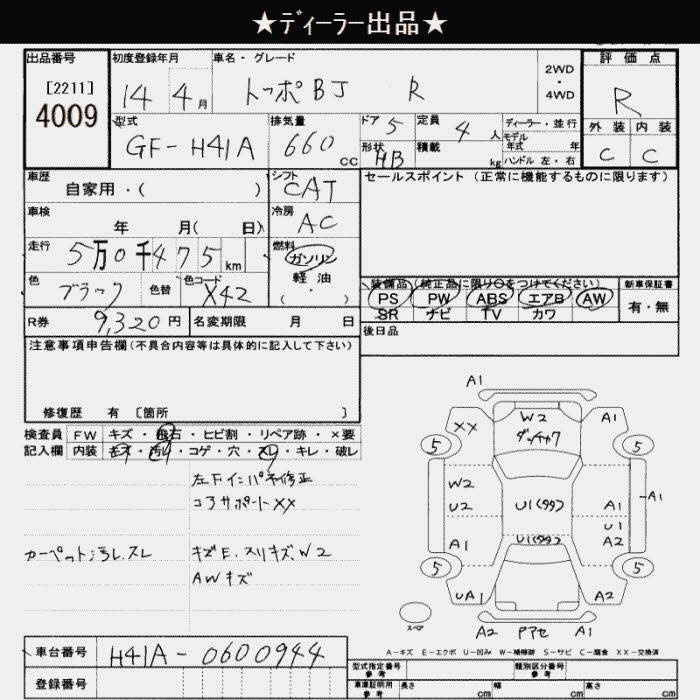 ★ディーラー出品★
出品番号
[2211]
4009
初度登録年月
14年4月
車名・グレード
トッポBJ R
2WD・4WD
評価点
R
外装 内装
C C
型式
GF-H41A
排気量
660cc
ドア 5
形状 HB
定員 4人
積載 kg
ディーラー・並行
モデル年式 年
ハンドル 左・右
車歴
自家用・( )
シフト
CAT
セールスポイント(正常に機能するものに限ります)
車検
年 月( 日)
冷房
AC
走行
5万0千475km
燃料
ガソリン
軽油
( ・ )
色
ブラック
色替
色コード
X42
装備品(純正品に限り○をつけてください)
PS PW ABS エアB AW
SR ナビ TV カワ
新車保証書
有・無
R券 9,320円
名変期限 月 日
後日品
注意事項申告欄(不具合内容等は具体的に記入して下さい)
修復歴 有〔箇所 〕
検査員記入欄
FW キズ・飛石・ヒビ割・リペア跡・×要
内装 キズ・汚レ・コゲ・穴・スレ・キレ・破レ
左Fインパネ修正
コアサポートXX
カーペット汚レ.スレ
キズE.スリキズ.W2
AWキズ
A1
XX W2 A1
ダッチャク
5 5
W2
U2 A1 A1
U1
A1 A2
5 5
UA1 A2
スペア
A2 アアセ A1
A-キズ E-エクボ U-凹み W-補修跡 S-サビ C-腐食 XX-交換済
車台番号 H41A-0600944
登録番号
型式指定番号 参考
類別区分番号 参考
車庫証明用 参考 長さ cm 幅 cm 高さ cm